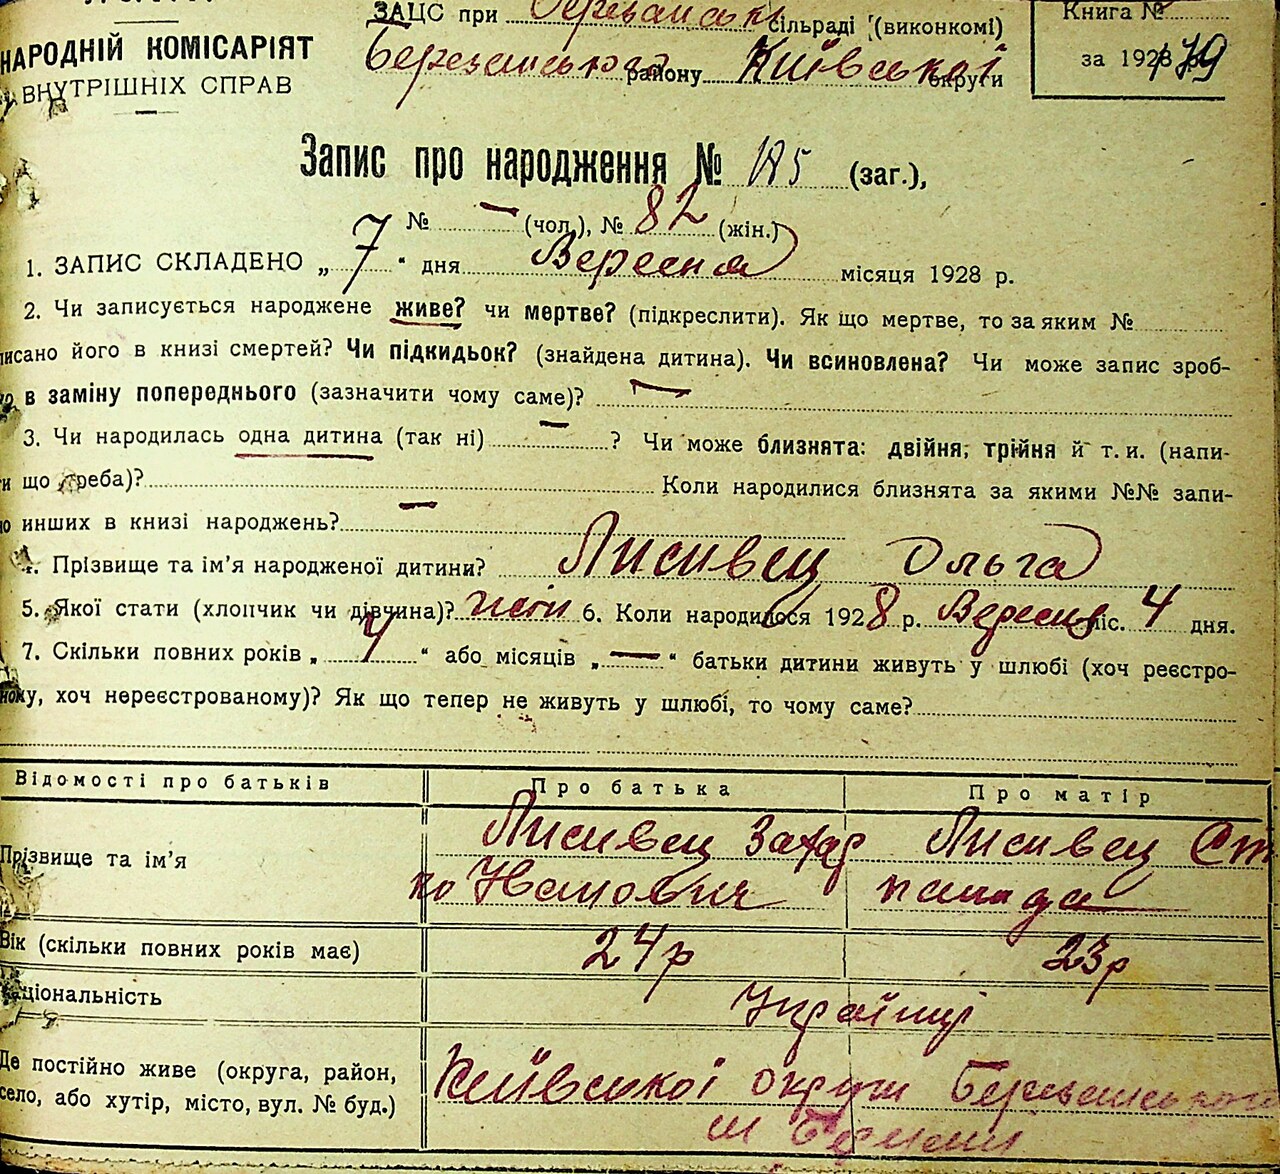 ЗАЦС при Березанській сільраді (виконкомі)
Березанського району Київської округи
НАРОДНІЙ КОМІСАРІЯТ
ВНУТРІШНІХ СПРАВ
Книга №
за 1928 179
Запис про народження № 185 (заг.),
№ — (чол.), № 82 (жін.)
1. ЗАПИС СКЛАДЕНО „ 7 “ дня Вересня місяця 1928 р.
2. Чи записується народжене живе? чи мертве? (підкреслити). Як що мертве, то за яким №
писано його в книзі смертей? Чи підкидьок? (знайдена дитина). Чи всиновлена? Чи може запис зроб-
в заміну попереднього (зазначити чому саме)? —
3. Чи народилась одна дитина (так ні) — ? Чи може близнята: двійня; трійня й т. и. (напи-
що треба)? Коли народилися близнята за якими №№ запи-
инших в книзі народжень? —
4. Прізвище та ім’я народженої дитини? Лисивец Ольга
5. Якої стати (хлопчик чи дівчина)? жін 6. Коли народилося 1928 р. Вересня міс. 4 дня.
7. Скільки повних років „ 4 “ або місяців „ — “ батьки дитини живуть у шлюбі (хоч реєстро-
ному, хоч нереєстрованому)? Як що тепер не живуть у шлюбі, то чому саме?
Відомості про батьків Про батька Про матір
Прізвище та ім’я Лисивец Захар Лисивец Сте
ко Иванович панида
Вік (скільки повних років має) 24 р 23 р
Національність Українці
Де постійно живе (округа, район, Київської округи Березанського
село, або хутір, місто, вул. № буд.)